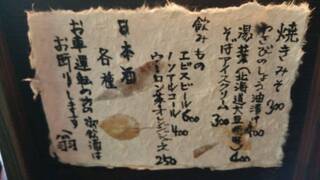 焼きみそ 300
わさびのしょう油漬け 400
湯葉(北海道大豆使用) 400
そばアイスクリーム 300
飲みもの
エビスビール 600
ノンアルコール 400
ウーロン茶オレンジジュース 250
日本酒
各種
お車運転の方御飲酒は
お断りします